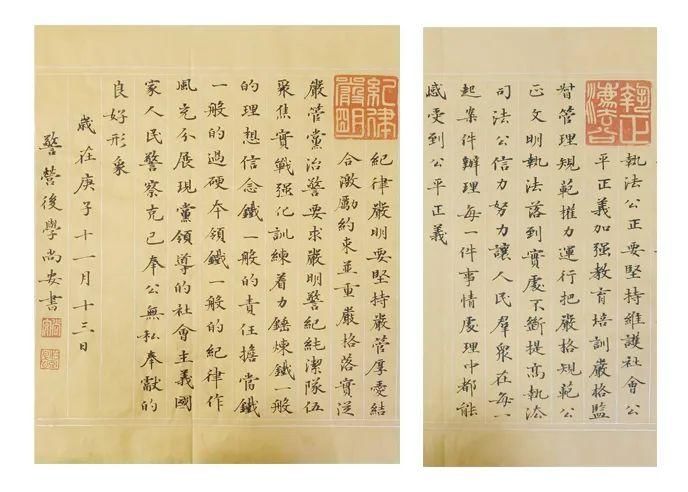 執灋公正
執法公正要堅持維護社會公
平正義加强教育培訓嚴格監
督管理規範權力運行把嚴格規範公
正文明執法落到實處不斷提高執法
司法公信力努力讓人民羣衆在每一
起案件辦理每一件事情處理中都能
感受到公平正義
紀律嚴明
紀律嚴明要堅持嚴管厚愛結
合激勵約束並重嚴格落實從
嚴管黨治警要求嚴明警紀純潔隊伍
聚焦實戰强化訓練着力錘煉鐵一般
的理想信念鐵一般的責任擔當鐵
一般的過硬本領鐵一般的紀律作
風充分展現黨領導的社會主義國
家人民警察克己奉公無私奉獻的
良好形象
歲在庚子十一月十三日
警營後學尚安書